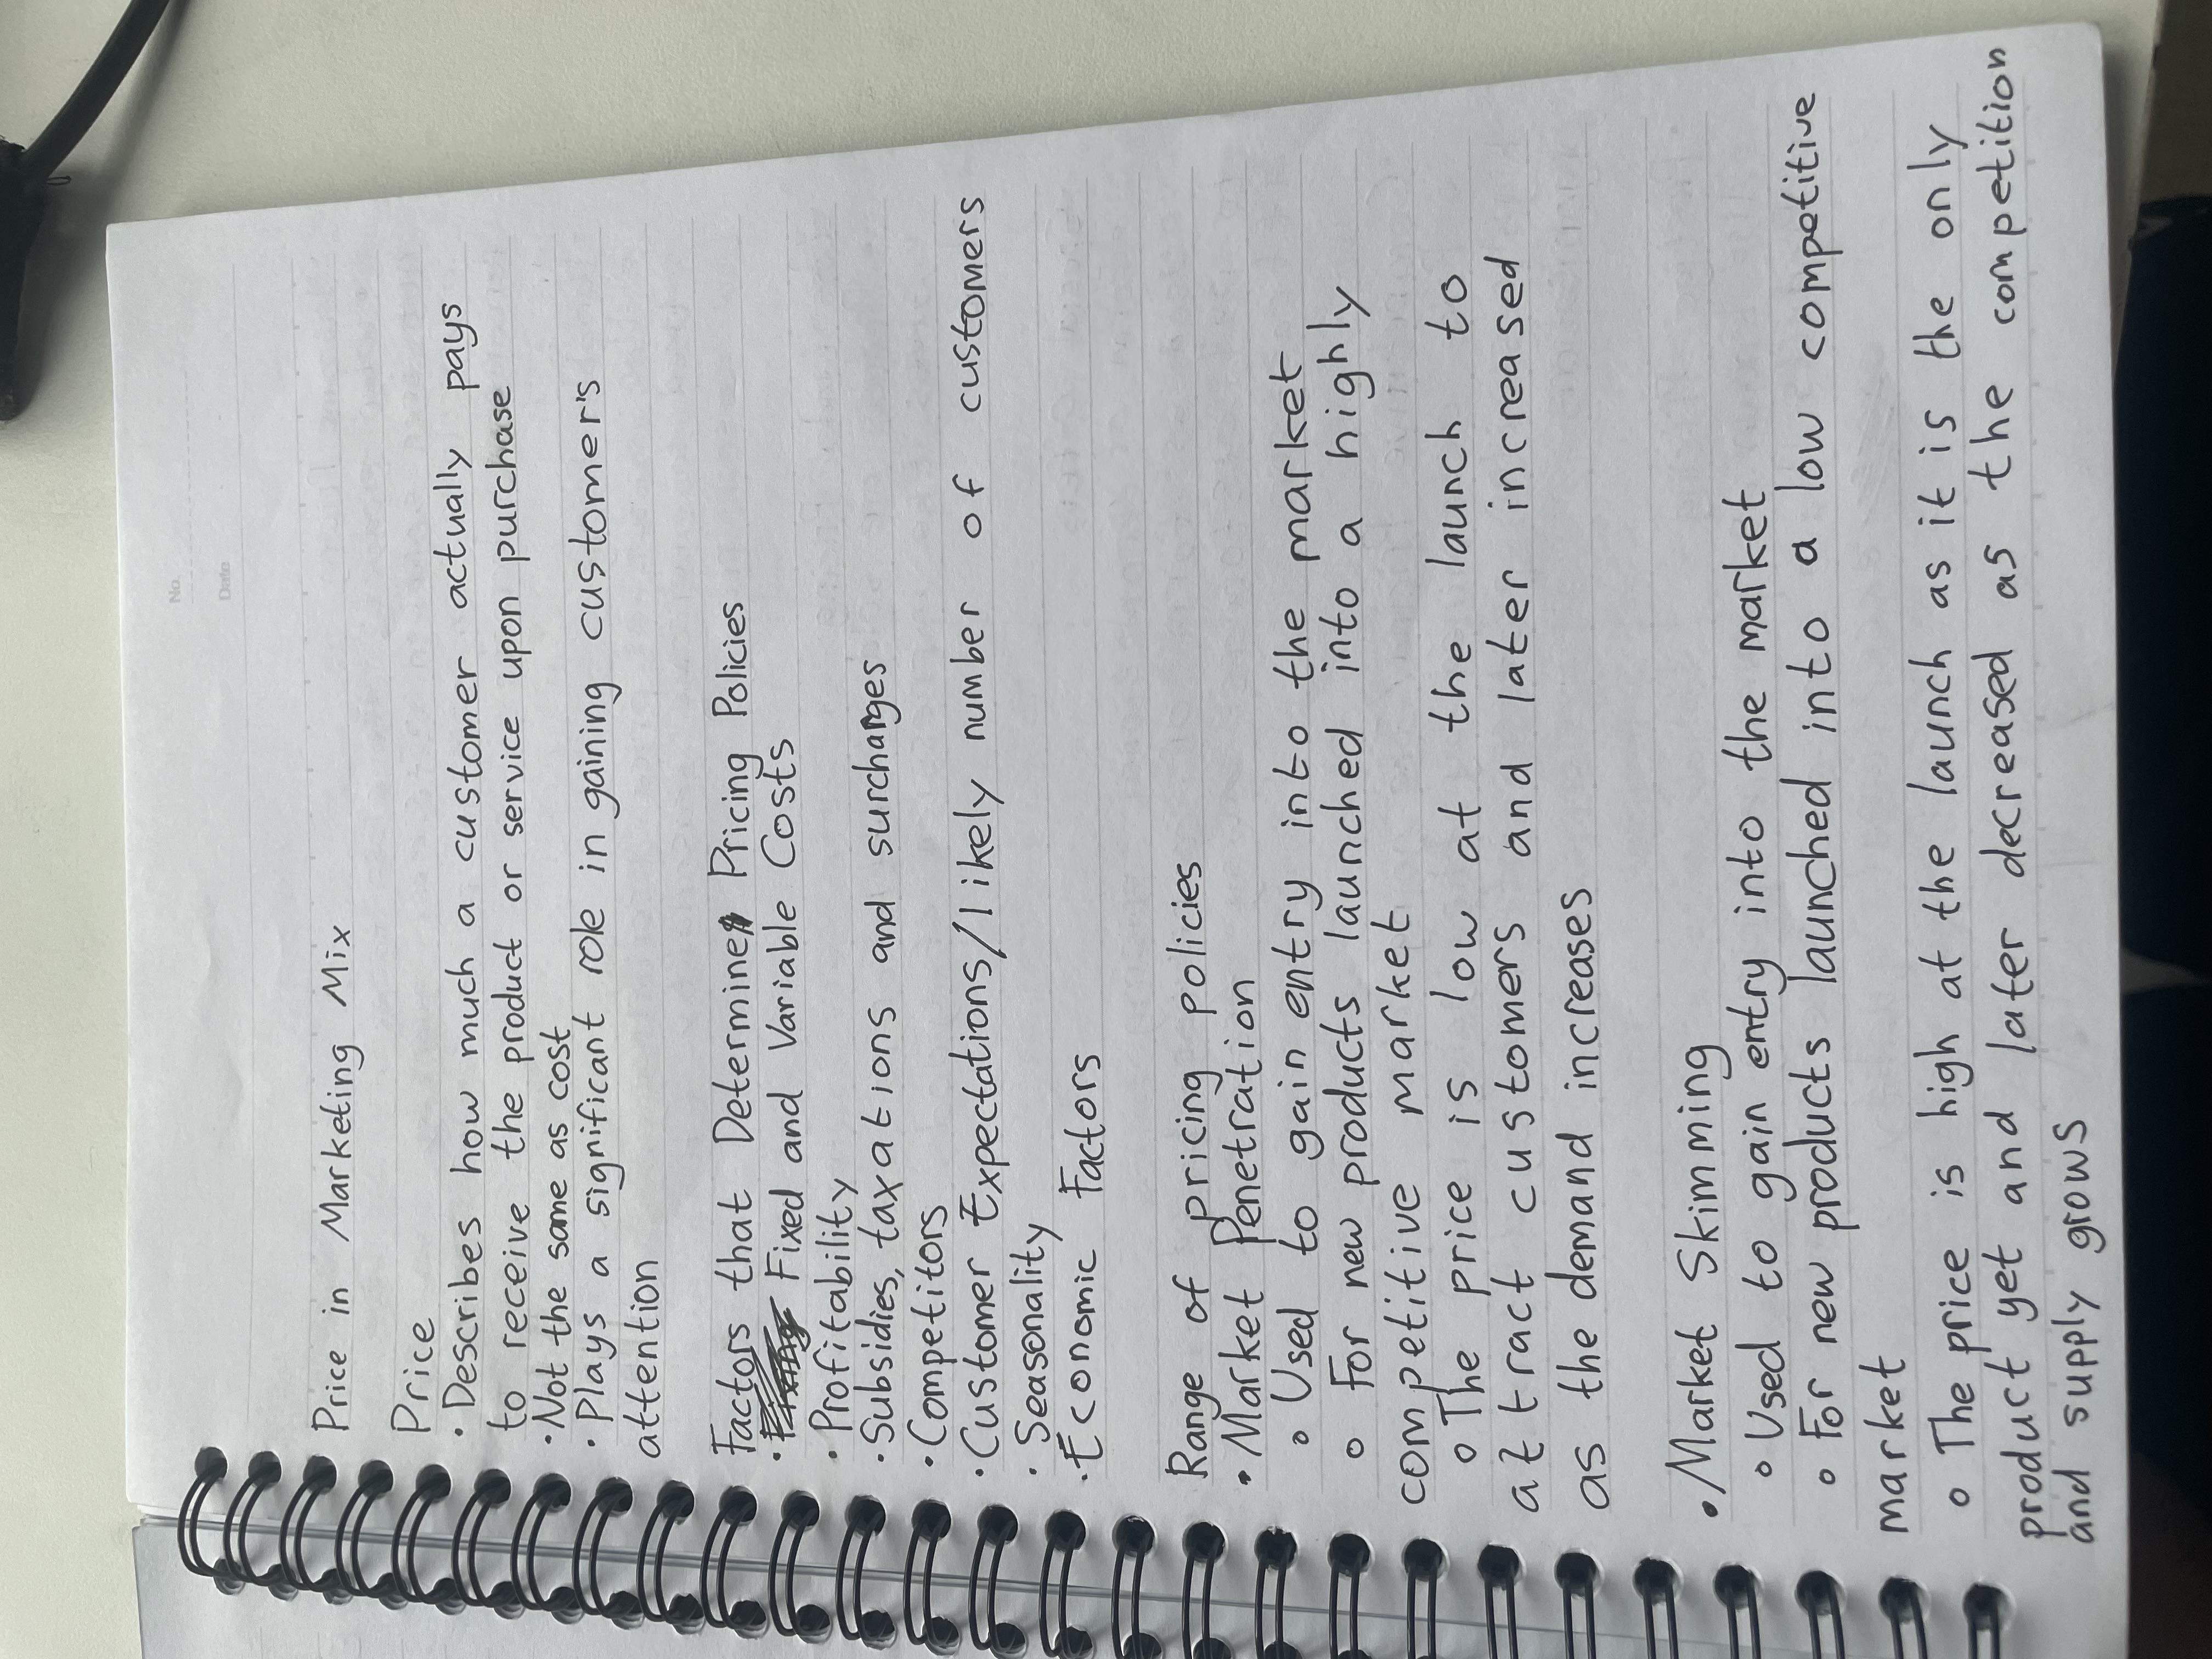 No.
Date
Price in Marketing Mix
Price
• Describes how much a customer actually pays
to receive the product or service upon purchase
• Not the same as cost
• Plays a significant role in gaining customer's
attention
Factors that Determine Pricing Policies
• Fixed and Variable Costs
• Profitability
• Subsidies, taxations and surcharges
• Competitors
• Customer Expectations/likely number of customers
• Seasonality
• Economic Factors
Range of pricing policies
• Market Penetration
○ Used to gain entry into the market
○ For new products launched into a highly
competitive market
○ The price is low at the launch to
attract customers and later increased
as the demand increases
• Market Skimming
○ Used to gain entry into the market
○ For new products launched into a low competitive
market
○ The price is high at the launch as it is the only
product yet and later decreased as the competition
and supply grows